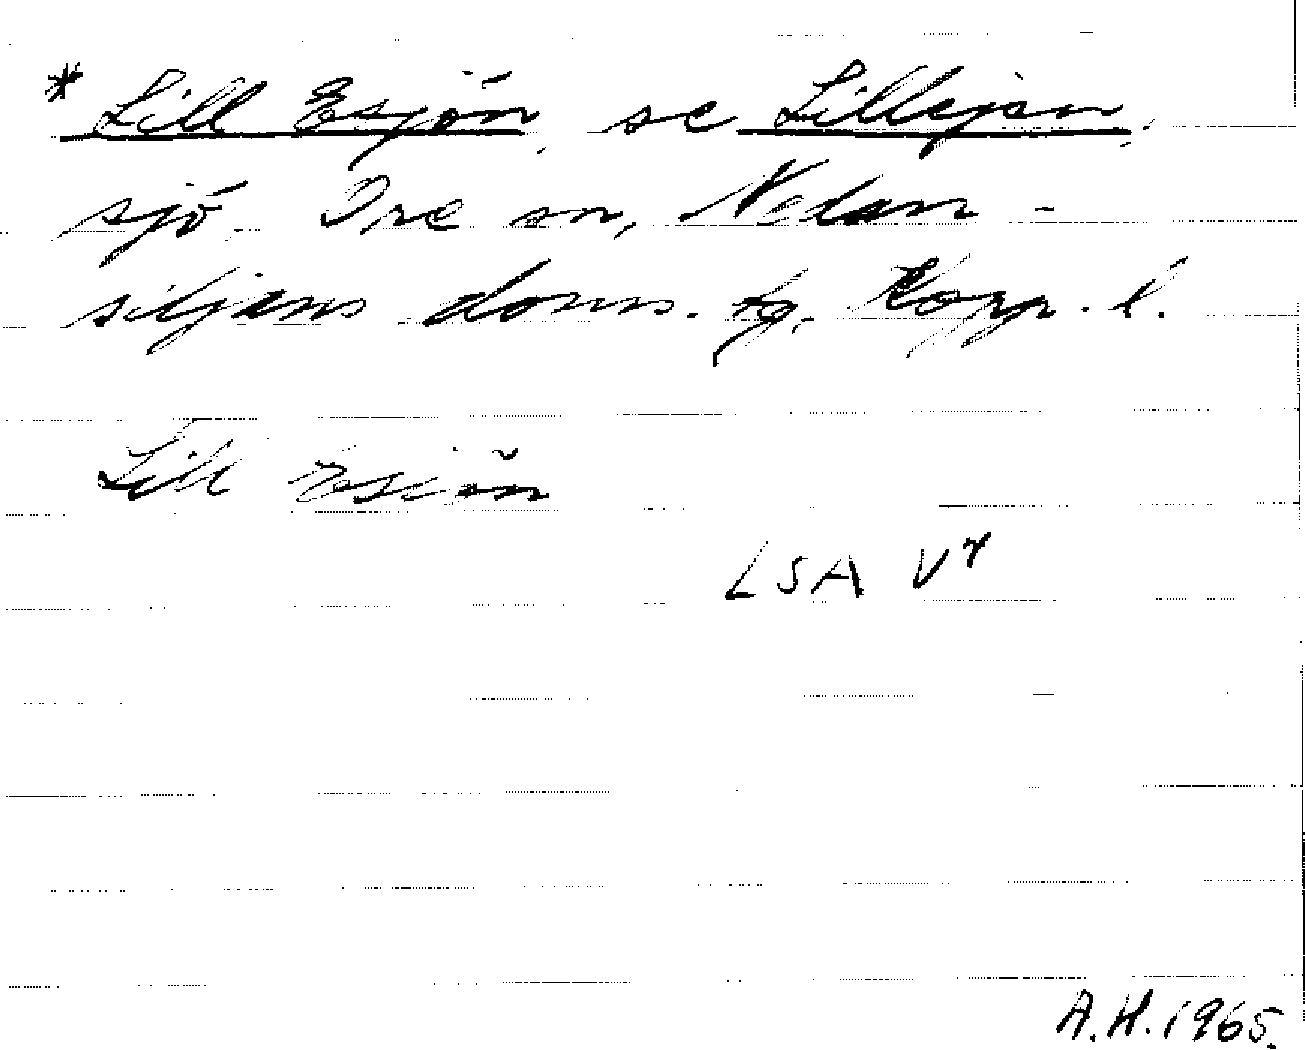 * Lill Esjön, se Lillejan,
sjö. Ore sn, Nedan-
siljans doms. tg. Kopp. l.
Lill Esiön
LSA V7
A.H. 1965.